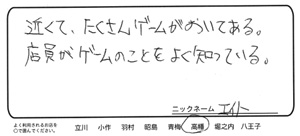 近くて、たくさんゲームがおいてある。
店員がゲームのことをよく知っている。
ニックネーム エイト
よく利用されるお店を
○で囲んでください。 立川 小作 羽村 昭島 青梅 高幡 堀之内 八王子